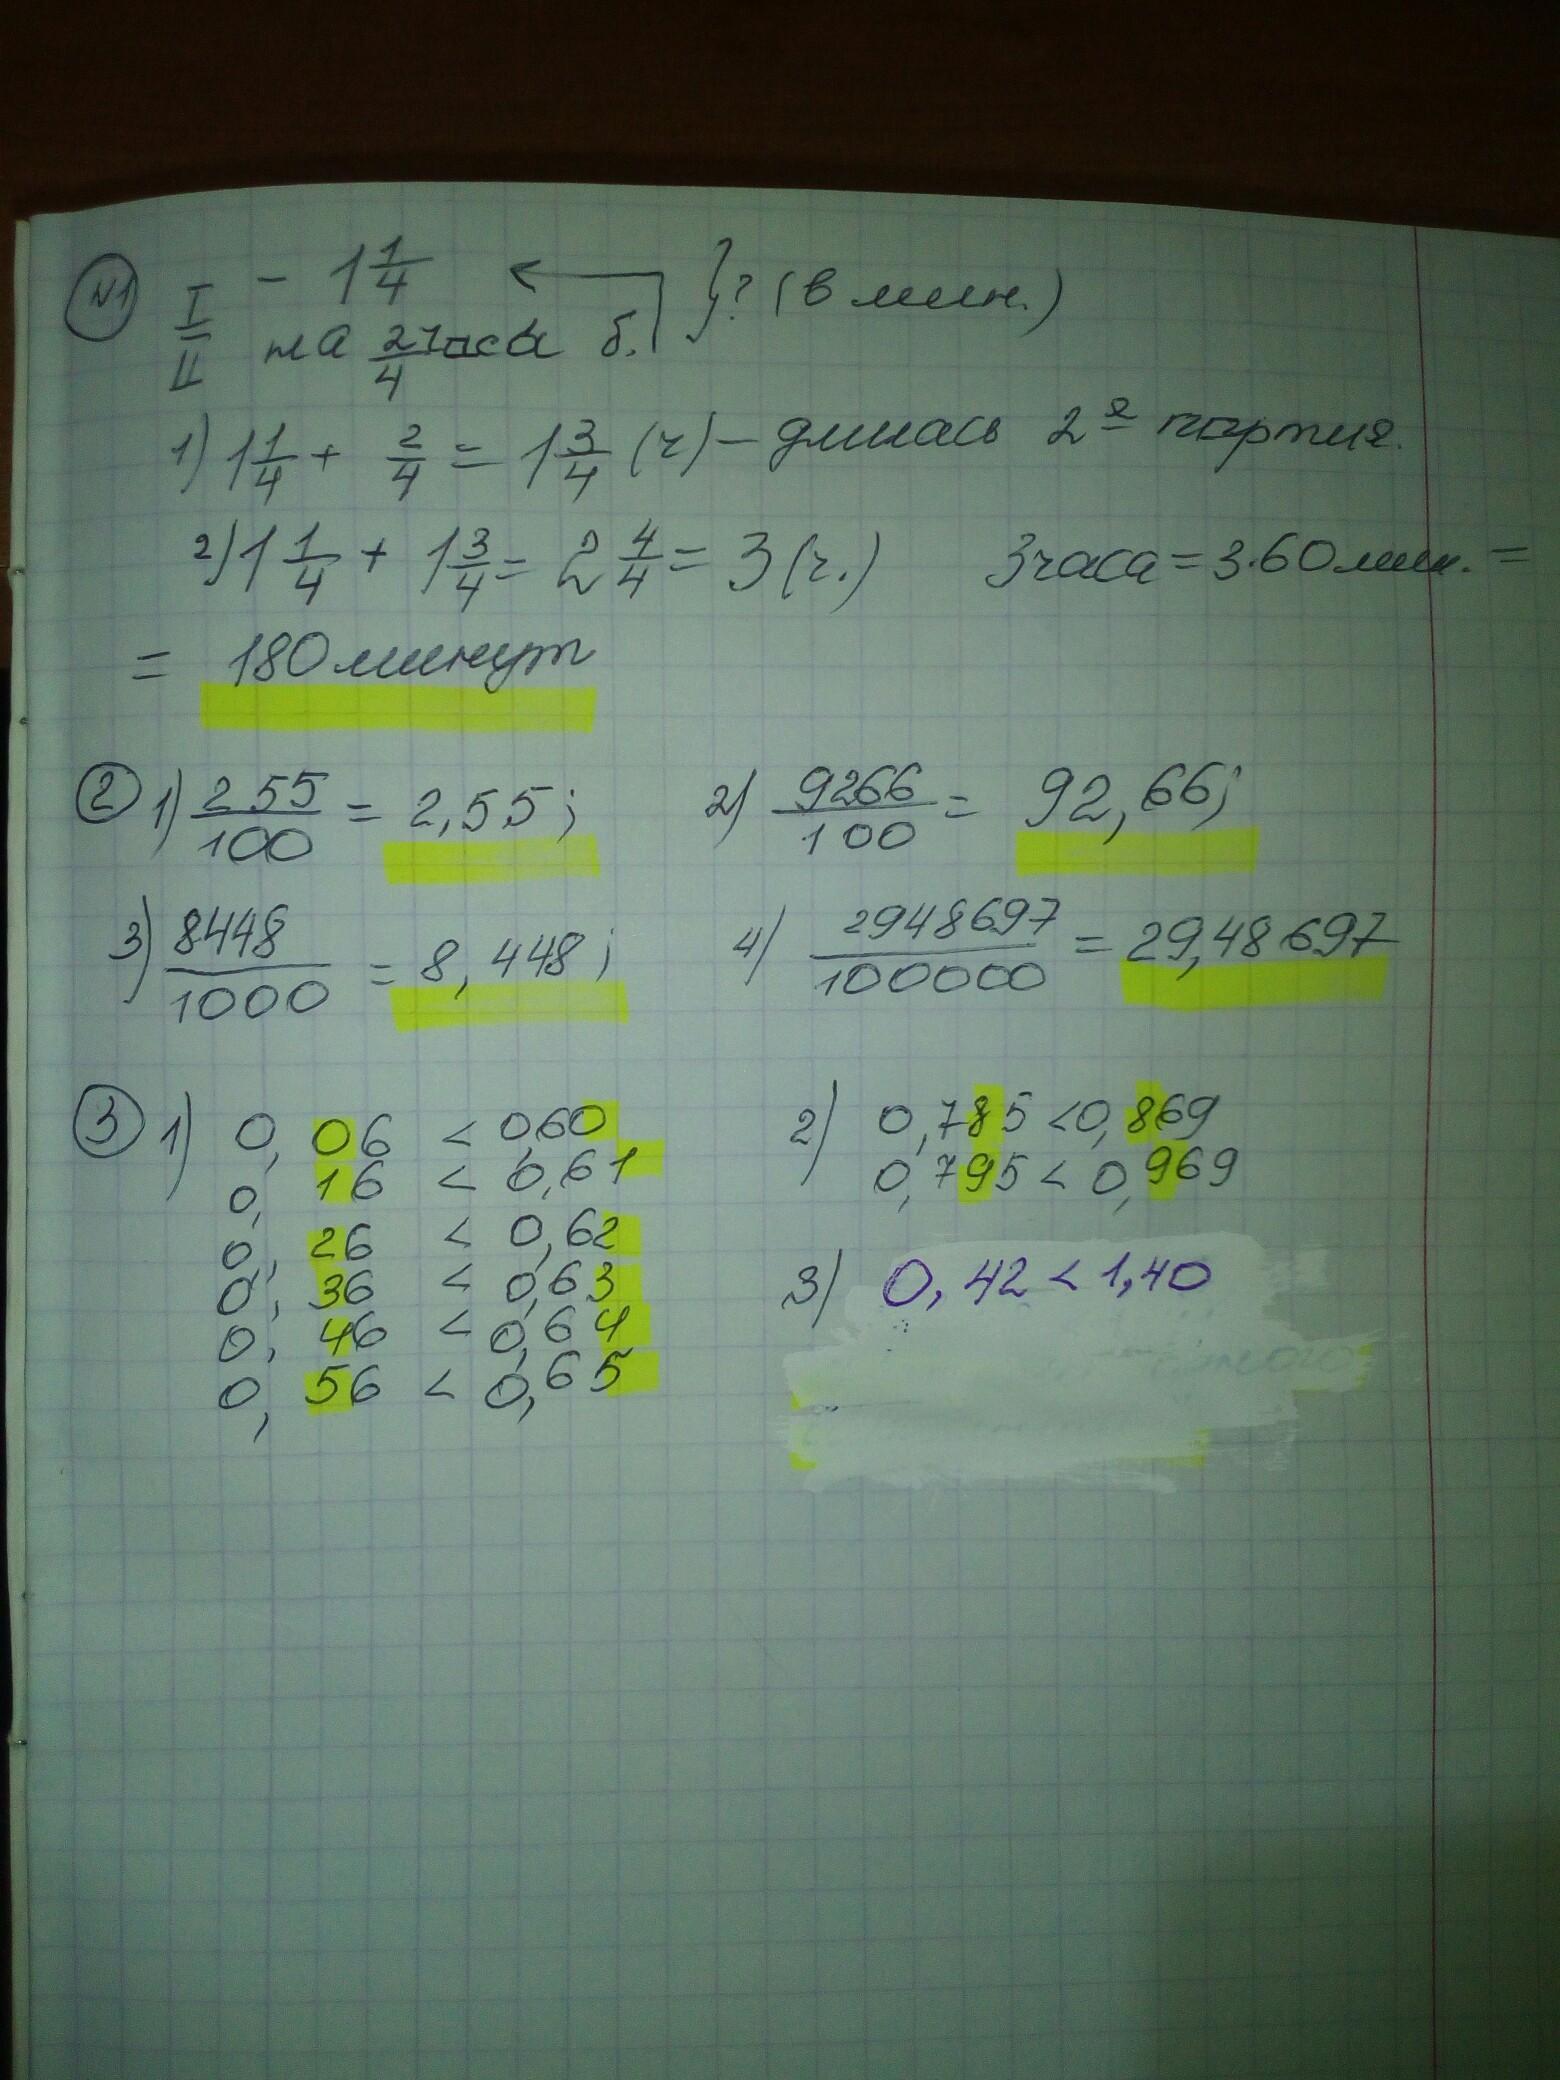 №1 I – 1 1/4 } ? (в мин.)
II на 2/4 часа б.
1) 1 1/4 + 2/4 = 1 3/4 (ч) – длилась 2я партия.
2) 1 1/4 + 1 3/4 = 2 4/4 = 3 (ч.) 3 часа = 3·60 мин. =
= 180 минут
2 1) 255/100 = 2,55; 2) 9266/100 = 92,66;
3) 8448/1000 = 8,448; 4) 2948697/100000 = 29,48697
3 1) 0,06 < 0,60
0,16 < 0,61
0,26 < 0,62
0,36 < 0,63
0,46 < 0,64
0,56 < 0,65
2) 0,785 < 0,869
0,795 < 0,969
3) 0,42 < 1,40